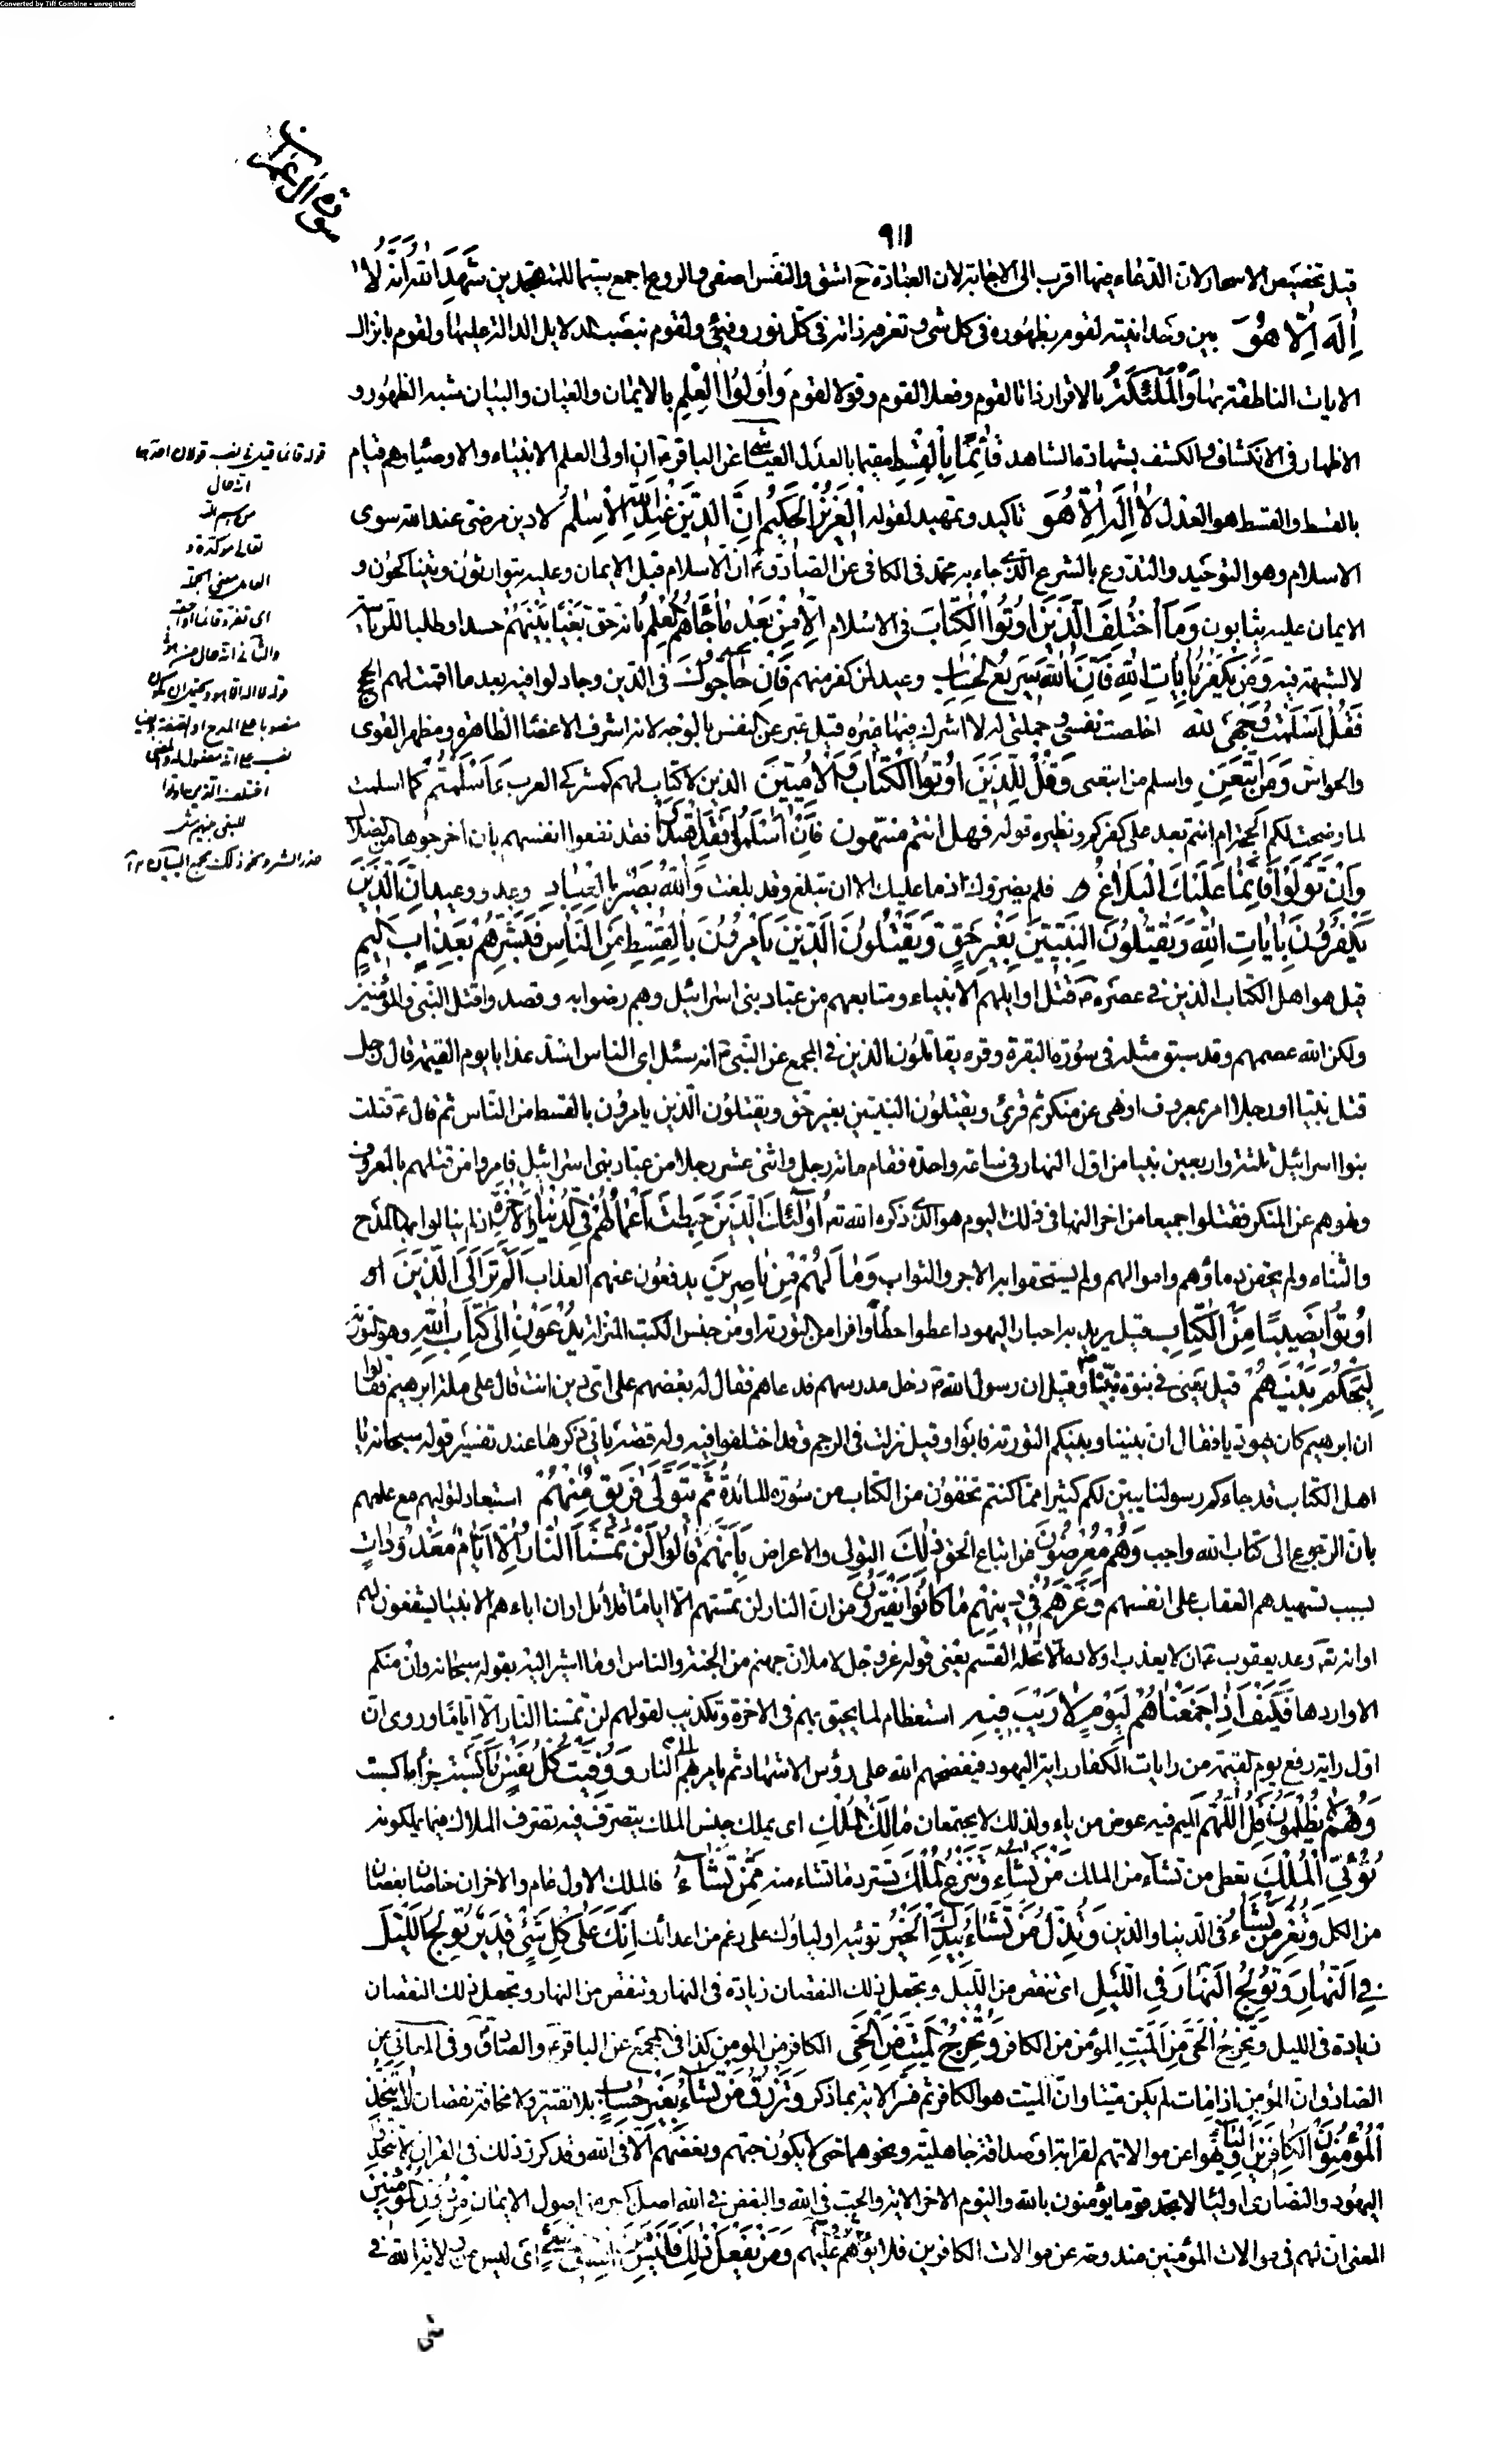 Converted by Tiff Combine - unregistered
سورة آل عمران
٩١١
قيل تخصيص الاسحار لان الدعاء فيها اقرب الى الاجابة لان العبادة ح اشق والنفس اصفى والروع اجمع سيما للمتهجدين شَهِدَ اللهُ اَنَّهُ لٰا
اِلٰهَ اِلّٰا هُوَ بين وحدانيته لقوم بظهوره في كل شئ وتعرف ذاته في كل نور وفيئ ولقوم بنصب الدلايل الدالة عليها ولقوم بانزال
الايات الناطقة بها وَالْمَلٰئِكَةُ بالاقرار ذاتا لقوم وفعلا لقوم وقولا لقوم وَاُولُوا الْعِلْمِ بالايمان والعيان والبيان شبه الظهور و
الاظهار في الانكشاف والكشف بشهادة الشاهد قٰائِمًا بِالْقِسْطِ مقيما بالعدل العياشي عن الباقر ع ان اولى العلم الانبياء والاوصياء وهم قيام
بالقسط والقسط هو العدل لٰا اِلٰهَ اِلّٰا هُوَ تاكيد وتمهيد لقوله الْعَزِيزُ الْحَكِيمُ اِنَّ الدِّينَ عِنْدَ اللهِ الْاِسْلٰمُ لا دين مرضى عند الله سوى
الاسلام وهو التوحيد والتدرع بالشرع الذي جاء به محمد في الكافي عن الصادق ع ان الاسلام قبل الايمان وعليه يتوارثون ويتناكحون و
الايمان عليه يثابون وَمَا اخْتَلَفَ الَّذِينَ اُوتُوا الْكِتٰابَ في الاسلام اِلّٰا مِنْ بَعْدِ مٰا جٰاءَهُمُ الْعِلْمُ بانه حق بَغْيًا بَيْنَهُمْ حسدا وطلبا للرياسة
لا لشبهة فيه وَمَنْ يَكْفُرْ بِاٰيٰاتِ اللهِ فَاِنَّ اللهَ سَرِيعُ الْحِسٰابِ وعيد لمن كفر منهم فَاِنْ حٰاجُّوكَ في الدين وجادلوا فيه بعد ما اقمت لهم الحجج
فَقُلْ اَسْلَمْتُ وَجْهِيَ لِلّٰه اخلصت نفسى وجملتى له لا اشرك فيها غيره قيل عبر عن النفس بالوجه لانه اشرف الاعضاء الظاهرة ومظهر القوى
والحواس وَمَنِ اتَّبَعَنِ واسلم من اتبعنى وَقُلْ لِلَّذِينَ اُوتُوا الْكِتٰابَ وَالْاُمِّيِّينَ الذين لا كتاب لهم كمشركى العرب ءَاَسْلَمْتُمْ كما اسلمت
لما وضحت لكم الحجة ام انتم بعد على كفركم ونظيره قوله فهل انتم منتهون فَاِنْ اَسْلَمُوا فَقَدِ اهْتَدَوْا فقد نفعوا انفسهم بان اخرجوها من الضلال
وَاِنْ تَوَلَّوْا فَاِنَّمٰا عَلَيْكَ الْبَلٰاغُ ط فلم يضروك اذ ما عليك الا ان تبلغ وقد بلغت وَاللهُ بَصِيرٌ بِالْعِبٰادِ وعد ووعيد اِنَّ الَّذِينَ
يَكْفُرُونَ بِاٰيٰاتِ اللهِ وَيَقْتُلُونَ النَّبِيِّينَ بِغَيْرِ حَقٍّ وَيَقْتُلُونَ الَّذِينَ يَاْمُرُونَ بِالْقِسْطِ مِنَ النّٰاسِ فَبَشِّرْهُمْ بِعَذٰابٍ اَلِيمٍ
قيل هو اهل الكتاب الذين في عصره ص قتل اوايلهم الانبياء ومتابعهم من عباد بنى اسرائيل وهم رضوا به وقصدوا قتل النبي والمؤمنين
ولكن الله عصمهم وقد سبق مثله في سورة البقرة وقرء يقاتلون الذين في المجمع عن النبي ص انه سئل اى الناس اشد عذابا يوم القيمة قال رجل
قتل نبيا او رجلا امر بمعروف او نهى عن منكر ثم قرئ ويقتلون النبيين بغير حق ويقتلون الذين يامرون بالقسط من الناس ثم قال ع قتلت
بنوا اسرائيل ثلثة واربعين نبيا من اول النهار في ساعة واحدة فقام مائة رجل واثنى عشر رجلا من عباد بنى اسرائيل فامروا من قتلهم بالمعروف
ونهوهم عن المنكر فقتلوا جميعا من اخر النهار في ذلك اليوم هو الذي ذكره الله تع اُولٰئِكَ الَّذِينَ حَبِطَتْ اَعْمٰالُهُمْ فِي الدُّنْيٰا وَالْاٰخِرَةِ اذ لم ينالوا بها المدح
والثناء ولم يحقن دماؤهم واموالهم ولم يستحقوا به الاجر والثواب وَمٰا لَهُمْ مِنْ نٰاصِرِينَ يدفعون عنهم العذاب اَلَمْ تَرَ اِلَى الَّذِينَ او
اُوتُوا نَصِيبًا مِنَ الْكِتٰابِ قيل يريد به احبار اليهود اعطوا حظا وافرا من التورية او من جنس الكتب المنزلة يُدْعَوْنَ اِلٰى كِتٰابِ اللهِ وهو التورية
لِيَحْكُمَ بَيْنَهُمْ قيل يعنى في نبوة نبينا ص وقيل ان رسول الله ص دخل مدرسهم فدعاهم فقال له بعضهم على اى دين انت قال على ملة ابرهيم فقالوا
ان ابرهيم كان يهوديا فقال ان بيننا وبينكم التورية فابوا وقيل نزلت في الرجم وقد اختلفوا فيه وله قصة ياتي ذكرها عند تفسير قوله سبحانه يا
اهل الكتاب قد جاءكم رسولنا يبين لكم كثيرا مما كنتم تخفون من الكتاب من سورة المائدة ثُمَّ يَتَوَلّٰى فَرِيقٌ مِنْهُمْ استبعاد لتوليهم مع علمهم
بان الرجوع الى كتاب الله واجب وَهُمْ مُعْرِضُونَ عن اتباع الحق ذٰلِكَ التولى والاعراض بِاَنَّهُمْ قٰالُوا لَنْ تَمَسَّنَا النّٰارُ اِلّٰا اَيّٰامًا مَعْدُودٰاتٍ
بسبب تسهيدهم العقاب على انفسهم وَغَرَّهُمْ فِي دِينِهِمْ مٰا كٰانُوا يَفْتَرُونَ من ان النار لن تمسهم الا اياما قلائل او ان اباءهم الانبياء يشفعون لهم
او انه تع وعد يعقوب ع ان لا يعذب اولاده الا تحلة القسم يعنى قوله عز وجل لاملان جهنم من الجنة والناس او ما اشير اليه بقوله سبحانه وان منكم
الا واردها فَكَيْفَ اِذٰا جَمَعْنٰاهُمْ لِيَوْمٍ لٰا رَيْبَ فِيهِ استعظام لما يحيق بهم في الاخرة وتكذيب لقولهم لن تمسنا النار الا اياما وروى ان
اول راية ترفع يوم القيمة من رايات الكفار راية اليهود فيفضحهم الله على رؤس الاشهاد ثم يامر بهم الى النار وَوُفِّيَتْ كُلُّ نَفْسٍ مٰا كَسَبَتْ جزاء ما كسبت
وَهُمْ لٰا يُظْلَمُونَ قُلِ اللّٰهُمَّ الميم فيه عوض من ياء ولذلك لا يجتمعان مٰالِكَ الْمُلْكِ اى يملك جنس الملك يتصرف فيه تصرف الملاك فيما يملكونه
تُؤْتِي الْمُلْكَ تعطى من تشاء من الملك مَنْ تَشٰاءُ وَتَنْزِعُ الْمُلْكَ تسترد ما تشاء منه مِمَّنْ تَشٰاءُ فالملك الاول عام والاخران خاصان بعضان
من الكل وَتُعِزُّ مَنْ تَشٰاءُ في الدنيا والدين وَتُذِلُّ مَنْ تَشٰاءُ بِيَدِكَ الْخَيْرُ توتيه اولياؤك على رغم من اعدائك اِنَّكَ عَلٰى كُلِّ شَيْءٍ قَدِيرٌ تُولِجُ اللَّيْلَ
فِي النَّهٰارِ وَتُولِجُ النَّهٰارَ فِي اللَّيْلِ اى تنقص من الليل وتجعل ذلك النقصان زيادة في النهار وتنقص من النهار وتجعل ذلك النقصان
زيادة في الليل وَتُخْرِجُ الْحَيَّ مِنَ الْمَيِّتِ المؤمن من الكافر وَتُخْرِجُ الْمَيِّتَ مِنَ الْحَيِّ الكافر من المومن كذا في المجمع عن الباقر ع والصادق وفي المعاني عن
الصادق ان المؤمن اذا مات لم يكن ميتا وان الميت هو الكافر ثم فسر الاية بما ذكر وَتَرْزُقُ مَنْ تَشٰاءُ بِغَيْرِ حِسٰابٍ بلا تقتير ولا مخافة نقصان لٰا يَتَّخِذِ
الْمُؤْمِنُونَ الْكٰافِرِينَ اَوْلِيٰاءَ نهوا عن موالاتهم لقرابة او صداقة جاهلية ونحوهما حتى لا يكون حبهم وبغضهم الا في الله وقد كرر ذلك في القران لا تتخذوا
اليهود والنصارى اولياء لا تجد قوما يؤمنون بالله واليوم الاخر الاية والحب في الله والبغض في الله اصل كبير من اصول الايمان مِنْ دُونِ الْمُؤْمِنِينَ
المعنى ان لهم في موالات المؤمنين مندوحة عن موالات الكافرين فلا يؤثروهم عليهم وَمَنْ يَفْعَلْ ذٰلِكَ فَلَيْسَ مِنَ اللهِ فِي شَيْءٍ اى ليس من ولاية الله في
شئ
قوله قائما قيل في نصبه قولان احدهما
انه حال
من اسم الله
تعالى مؤكدة و
العامل معنى الجملة
والثاني انه حال من هو